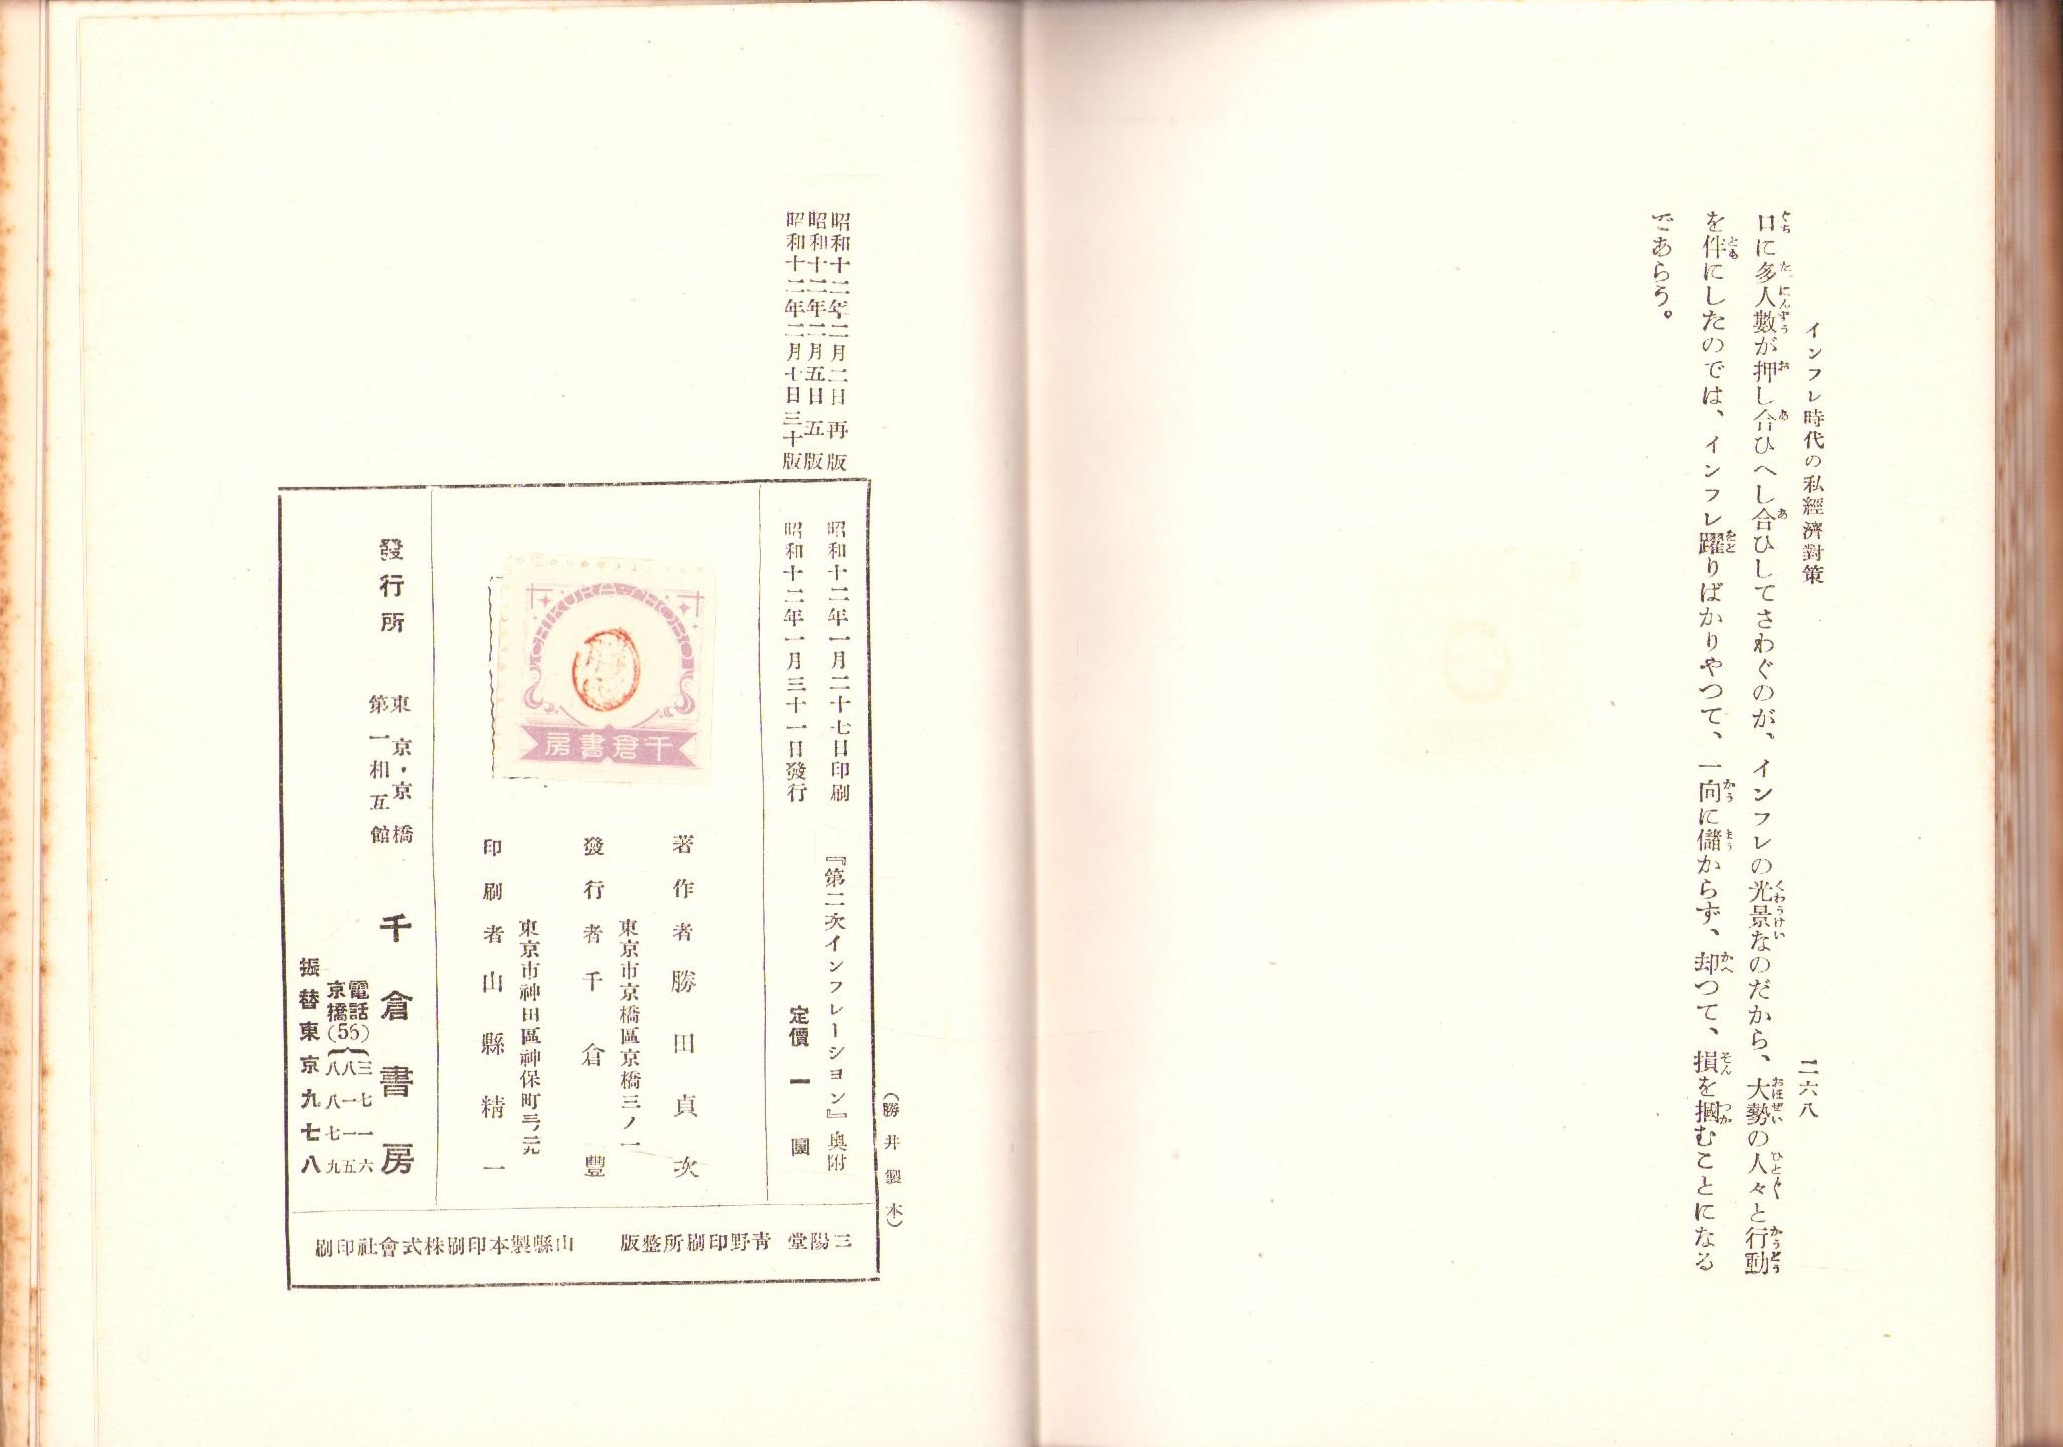 インフレ時代の私經濟對策
二六八
口に多人數が押し合ひへし合ひしてさわぐのが、インフレの光景なのだから、大勢の人々と行動
を伴にしたのでは、インフレ躍りばかりやつて、一向に儲からず、却つて、損を摑むことになる
であらう。
昭和十二年二月二日再版
昭和十二年二月五日五版
昭和十二年二月七日三十版
(勝井製本)
昭和十二年一月二十七日印刷
昭和十二年一月三十一日發行
『第二次インフレーション』奧附
定價一圓
著作者 勝田貞次
東京市京橋區京橋三ノ一
發行者 千倉豐
東京市神田區神保町三ノ元
印刷者 山縣精一
CHIKURA-SHOBO
千倉書房
發行所
東京・京橋
第一相互館
千倉書房
電話
京橋(56)
三七一六
八一一五
八八七九
振替東京九七八
三陽堂 靑野印刷所整版 山縣製本印刷株式會社印刷